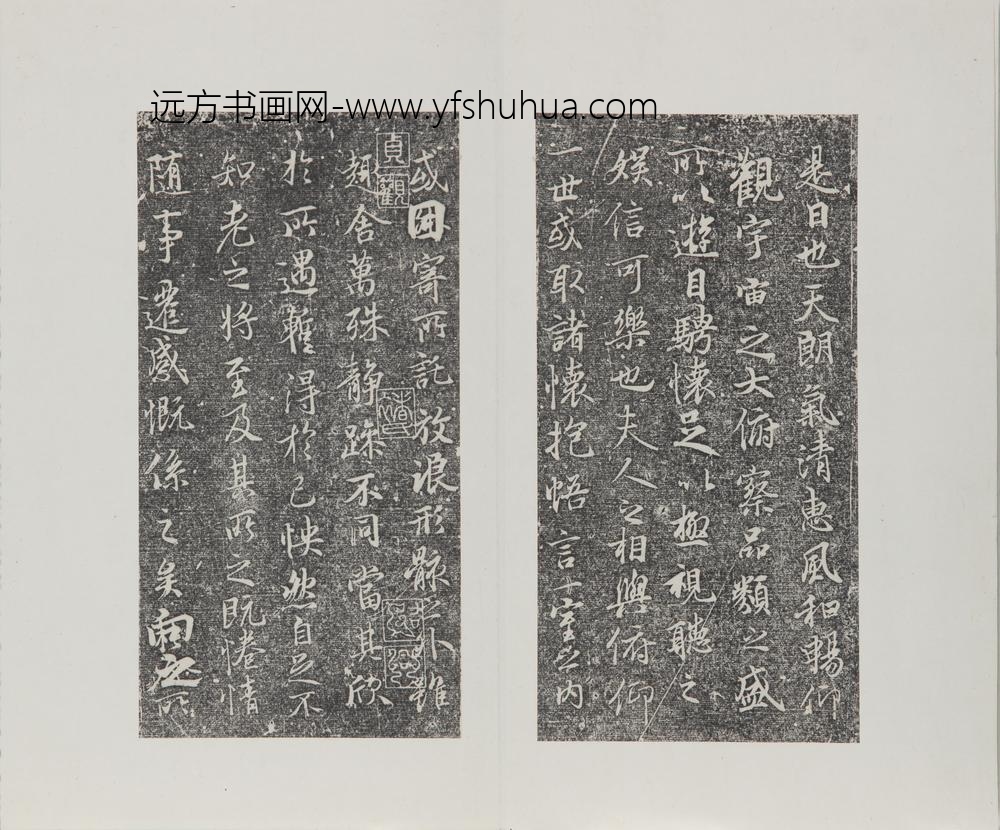 远方书画网-www.yfshuhua.com
是日也天朗氣清惠風和暢仰
觀宇宙之大俯察品類之盛
所以遊目騁懷足以極視聽之
娛信可樂也夫人之相與俯仰
一世或取諸懷抱悟言一室之內
或因寄所託放浪形骸之外雖
趣舍萬殊靜躁不同當其欣
於所遇暫得於己怏然自足不
知老之將至及其所之既惓情
隨事遷感慨係之矣向之所
貞觀